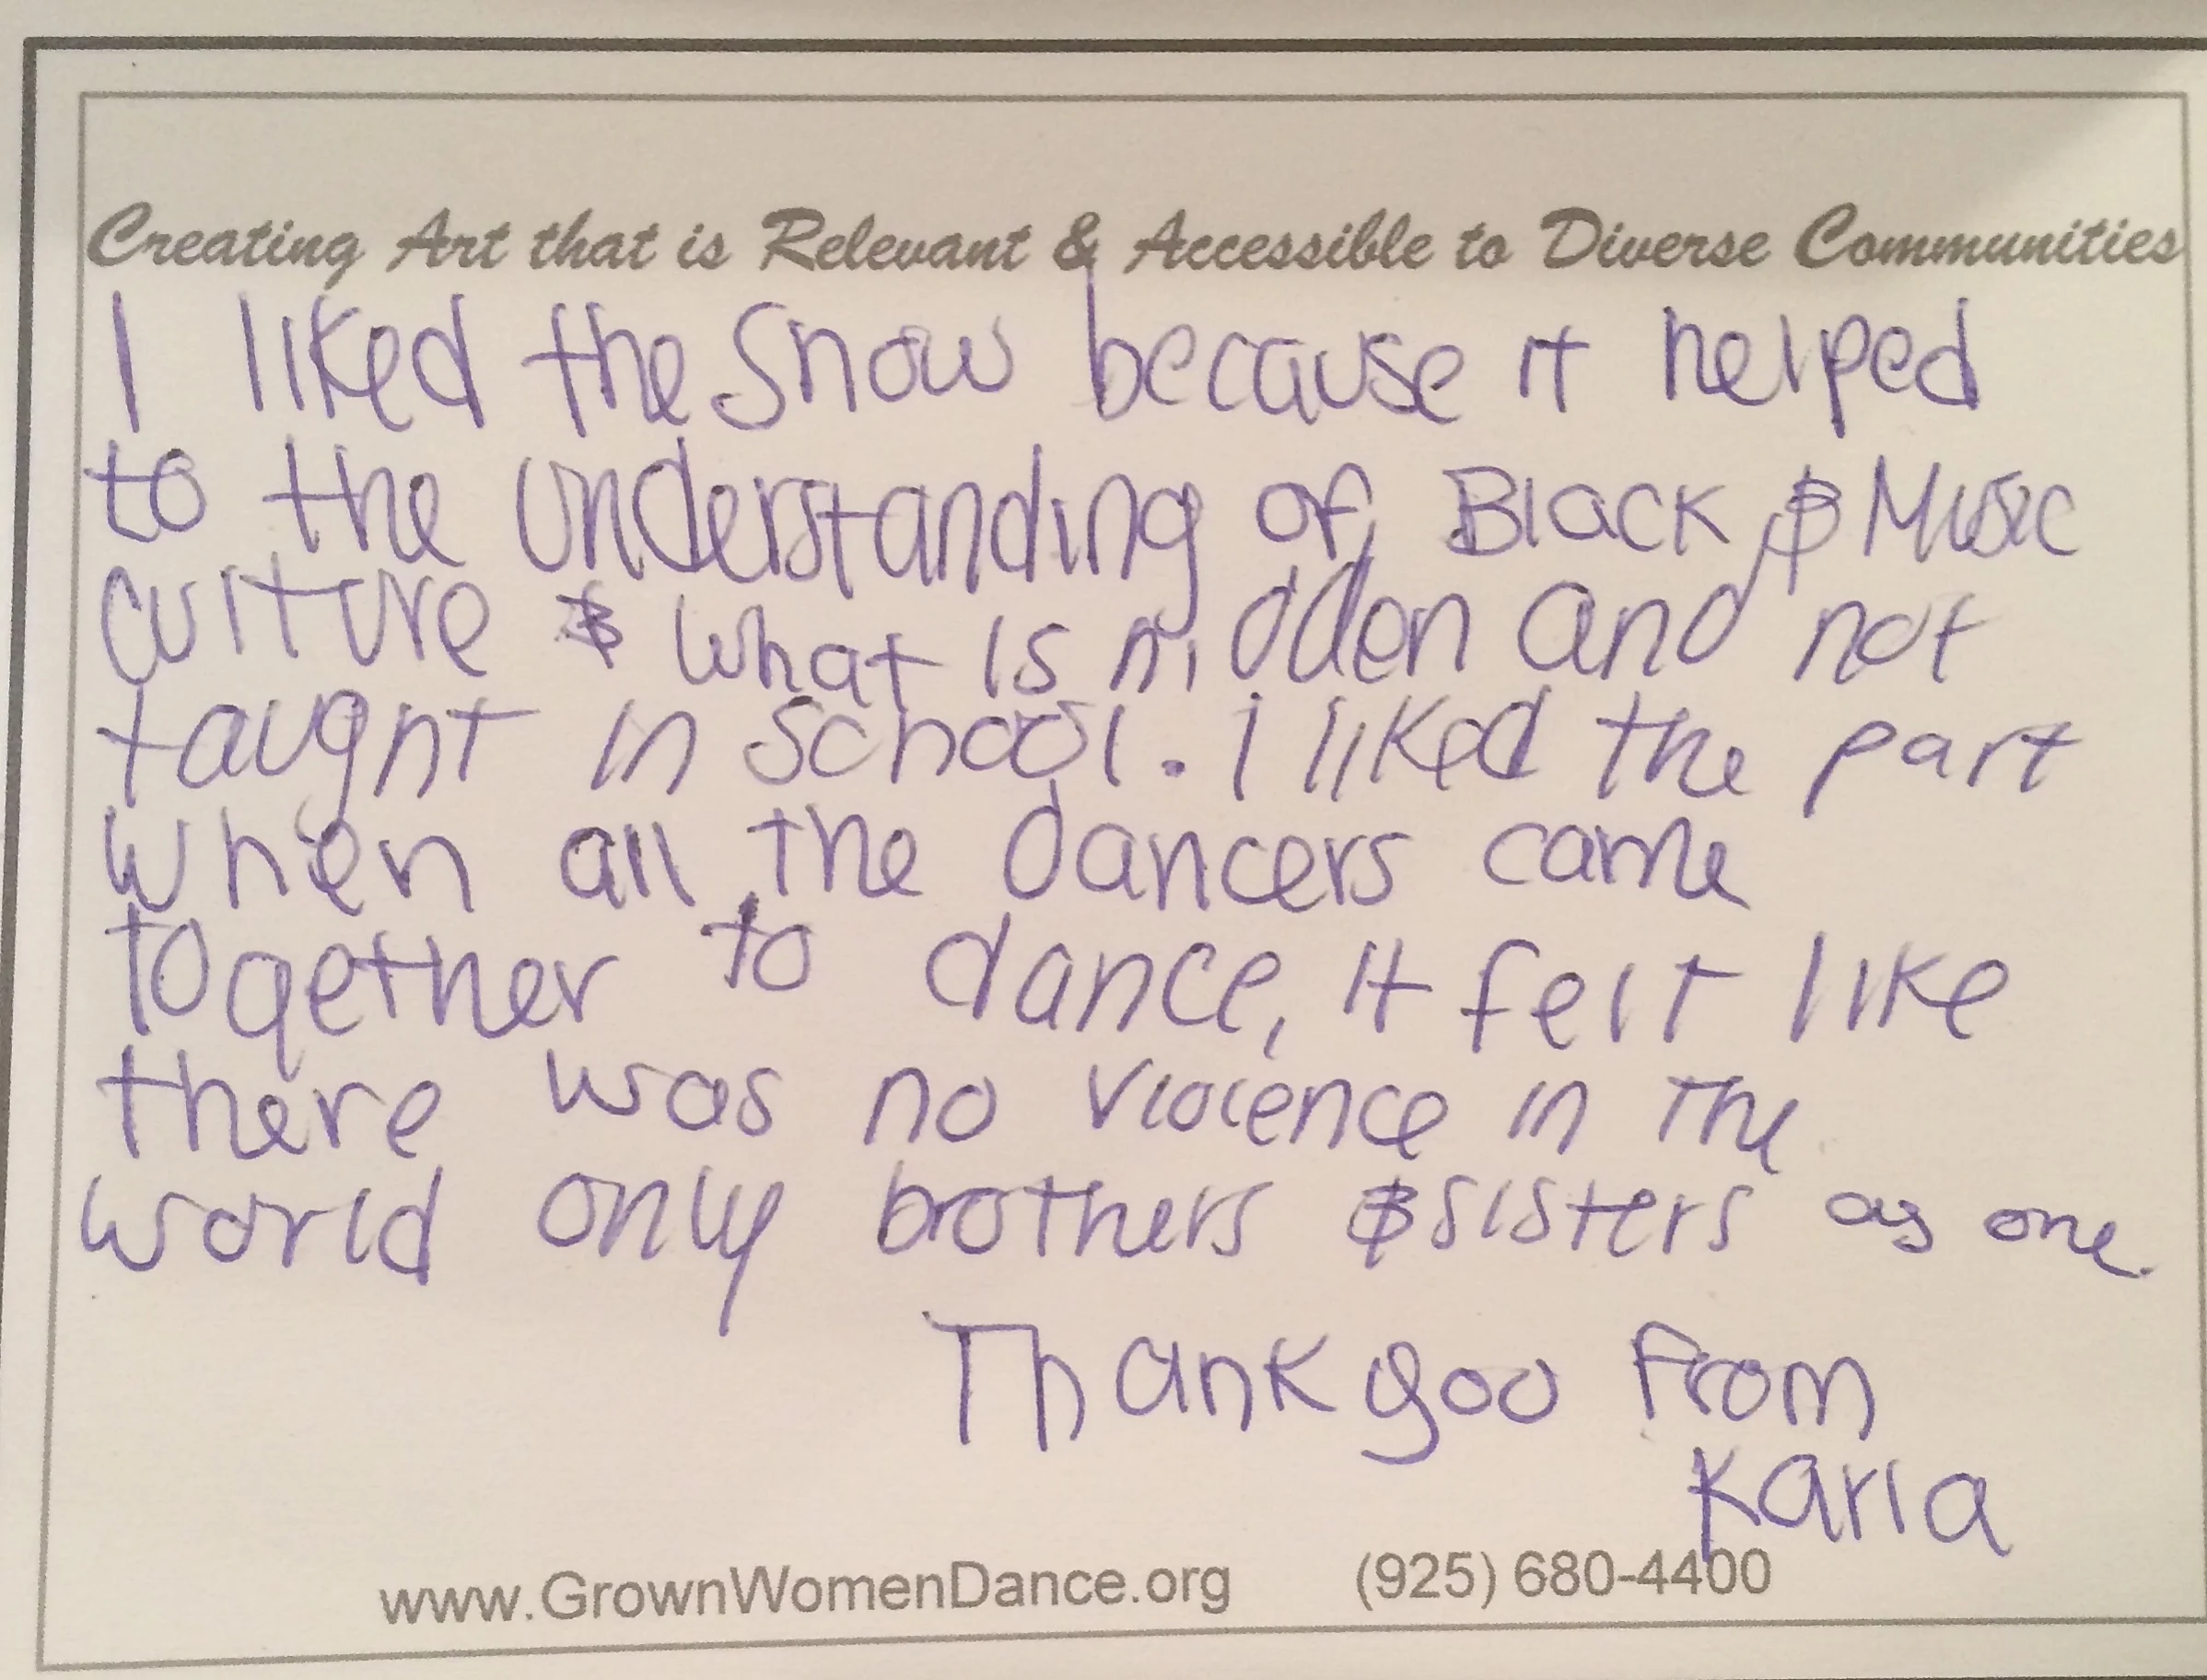 Creating Art that is Relevant & Accessible to Diverse Communities
I liked the show because it helped
to the understanding of Black & Music
culture & what is hidden and not
taught in school. I liked the part
when all the dancers came
together to dance, it felt like
there was no violence in the
world only brothers & sisters as one.
Thank you from
Karla
www.GrownWomenDance.org (925) 680-4400